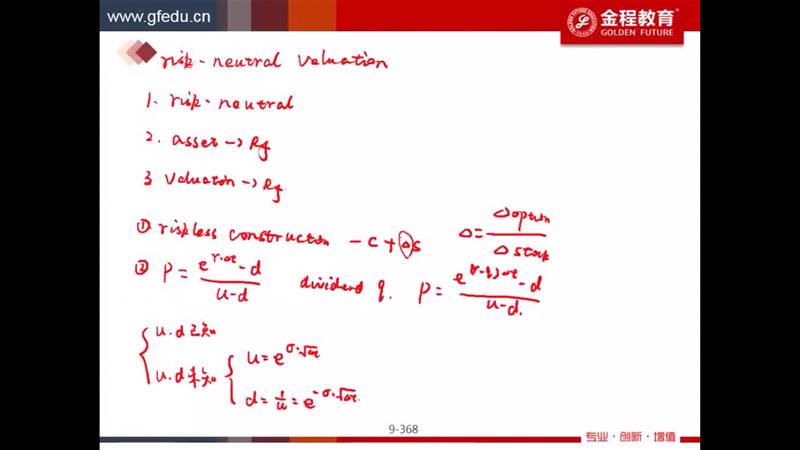 www.gfedu.cn
金程教育
GOLDEN FUTURE
risk-neutral valuation
1. risk-neutral
2. asset → Rf
3. valuation → Rf
① riskless construction -c+Δs Δ= Δoption / Δstock
② P = e^{r·Δt} - d / u-d dividend q. P = e^{(r-q)Δt} - d / u-d.
u.d 已知
u.d 未知
u = e^{σ·√Δt}
d = 1/u = e^{-σ·√Δt}.
9-368
专业·创新·增值